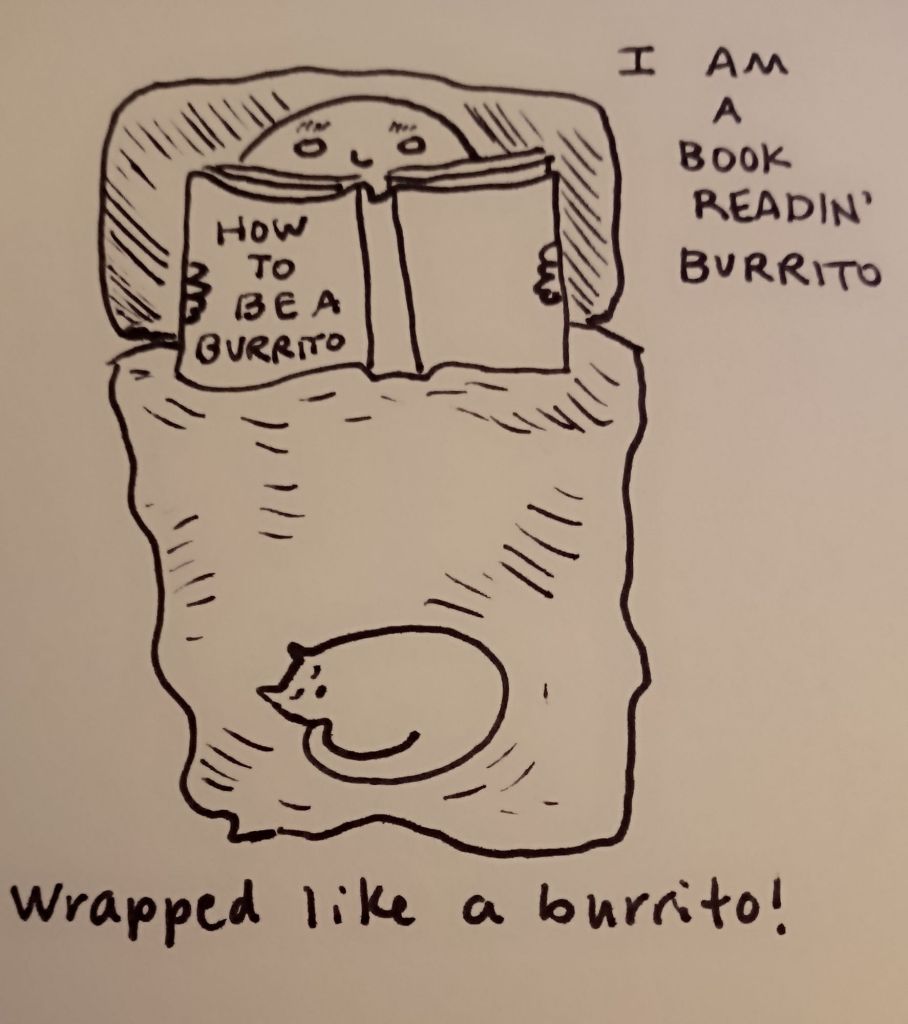 I AM
A
BOOK
READIN'
BURRITO
HOW
TO
BE A
BURRITO
Wrapped like a burrito!